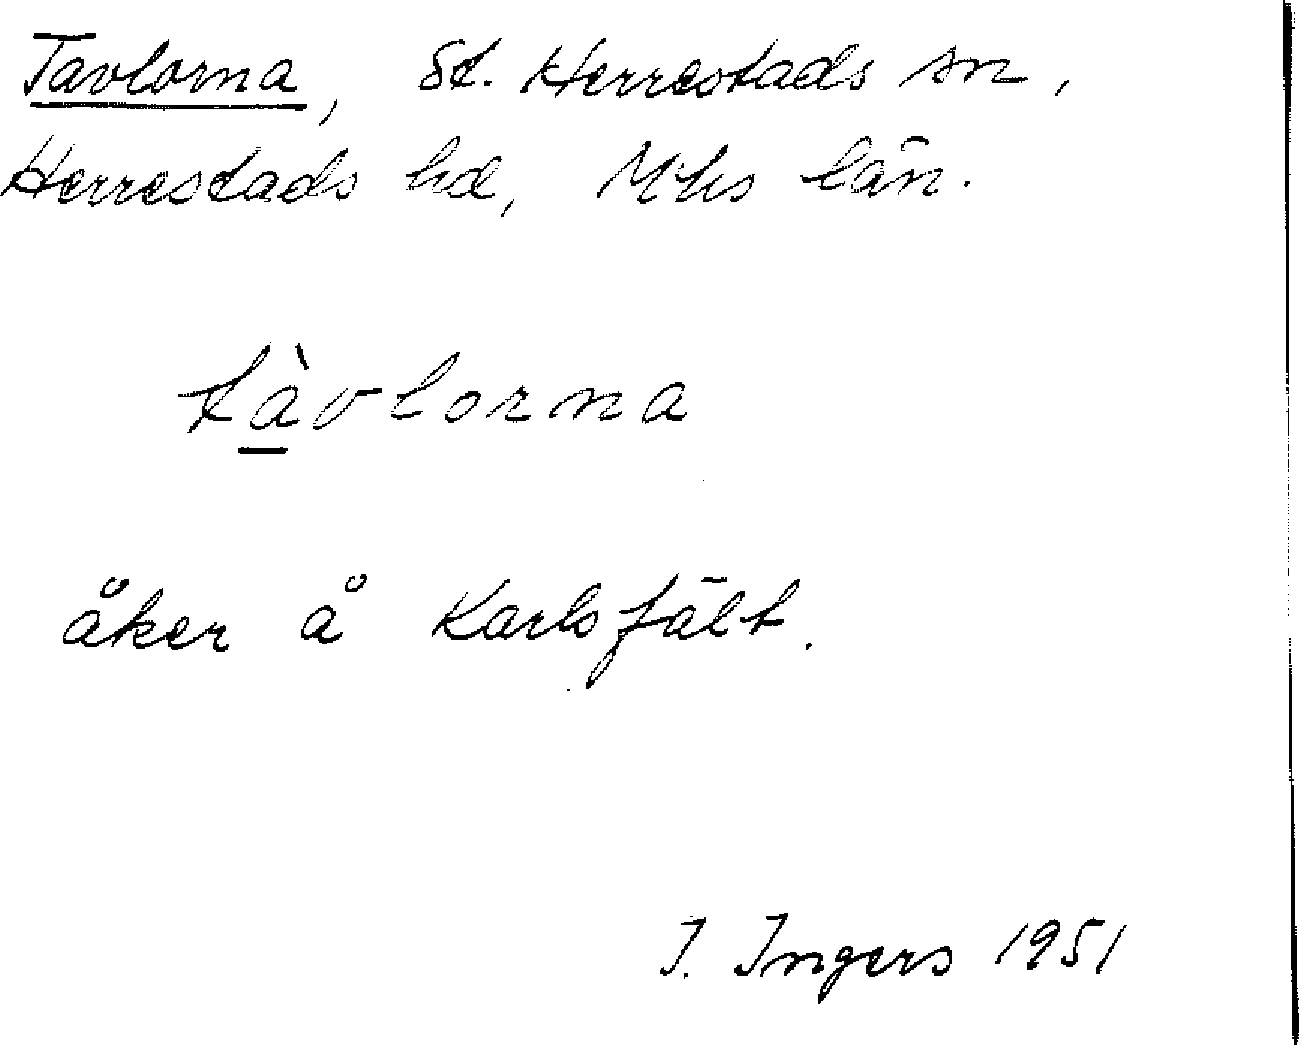 Tavlorna, St. Herrestads sn,
Herrestads hd, Mhs län.
tàvlorna
åker å Karlsfält.
I. Ingers 1951